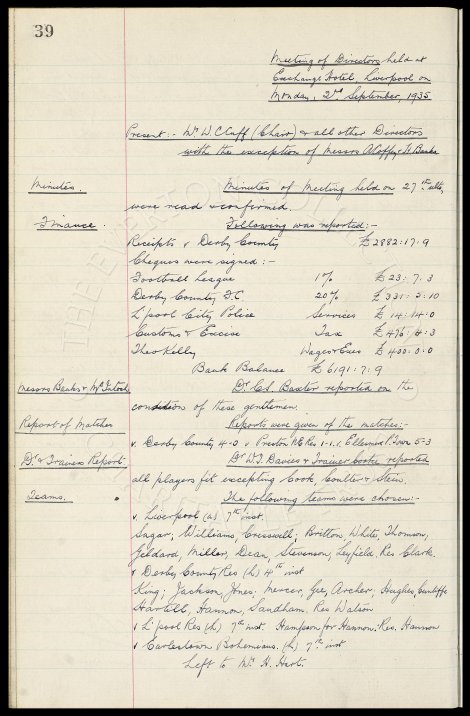 39
Meeting of Directors held at
Exchange Hotel, Liverpool on
Monday, 2nd September, 1935
Present:- Mr W C Cuff (Chair) & all other Directors
with the exception of Messrs A Coffey & H. Banks
Minutes.
Minutes of Meeting held on 27th ulto,
were read & confirmed.
Finance.
Following was reported:-
Receipts v Derby County £2882:17:9
Cheques were signed:-
Football League 1% £23:7:3
Derby County F.C. 20% £331:5:10
L'pool City Police Services £14:14:0
Customs & Excise Tax £476:6:3
Theo Kelly Wages & Exes £400:0:0
Bank Balance £6191:7:9
Messrs Banks & McIntosh
Dr. C.S. Baxter reported on the
condition of these gentlemen.
Report of Matches
Reports were given of the matches:-
v. Derby County 4-0 v Preston N.E. Res 1-1, v. Ellesmere P. Town 5-3
Dr & Trainers Report
Dr W.J. Davies & Trainer Cooke reported
all players fit excepting Cook, Coulter & Stein.
Teams.
The following teams were chosen:-
v. Liverpool (a) 7th inst.
Sagar; Williams, Cresswell; Britton, White, Thomson,
Geldard, Miller, Dean, Stevenson, Leyfield. Res Clark.
v Derby County Res (h) 4th inst
King; Jackson, Jones: Mercer, Gee, Archer; Hughes, Cunliffe
Hartill, Hannon, Sandham. Res Watson
v L'pool Res (h) 7th inst. Hampson for Hannon. Res. Hannon
v Earlestown Bohemians. (h) 7th inst
Left to Mr. H. Hart.